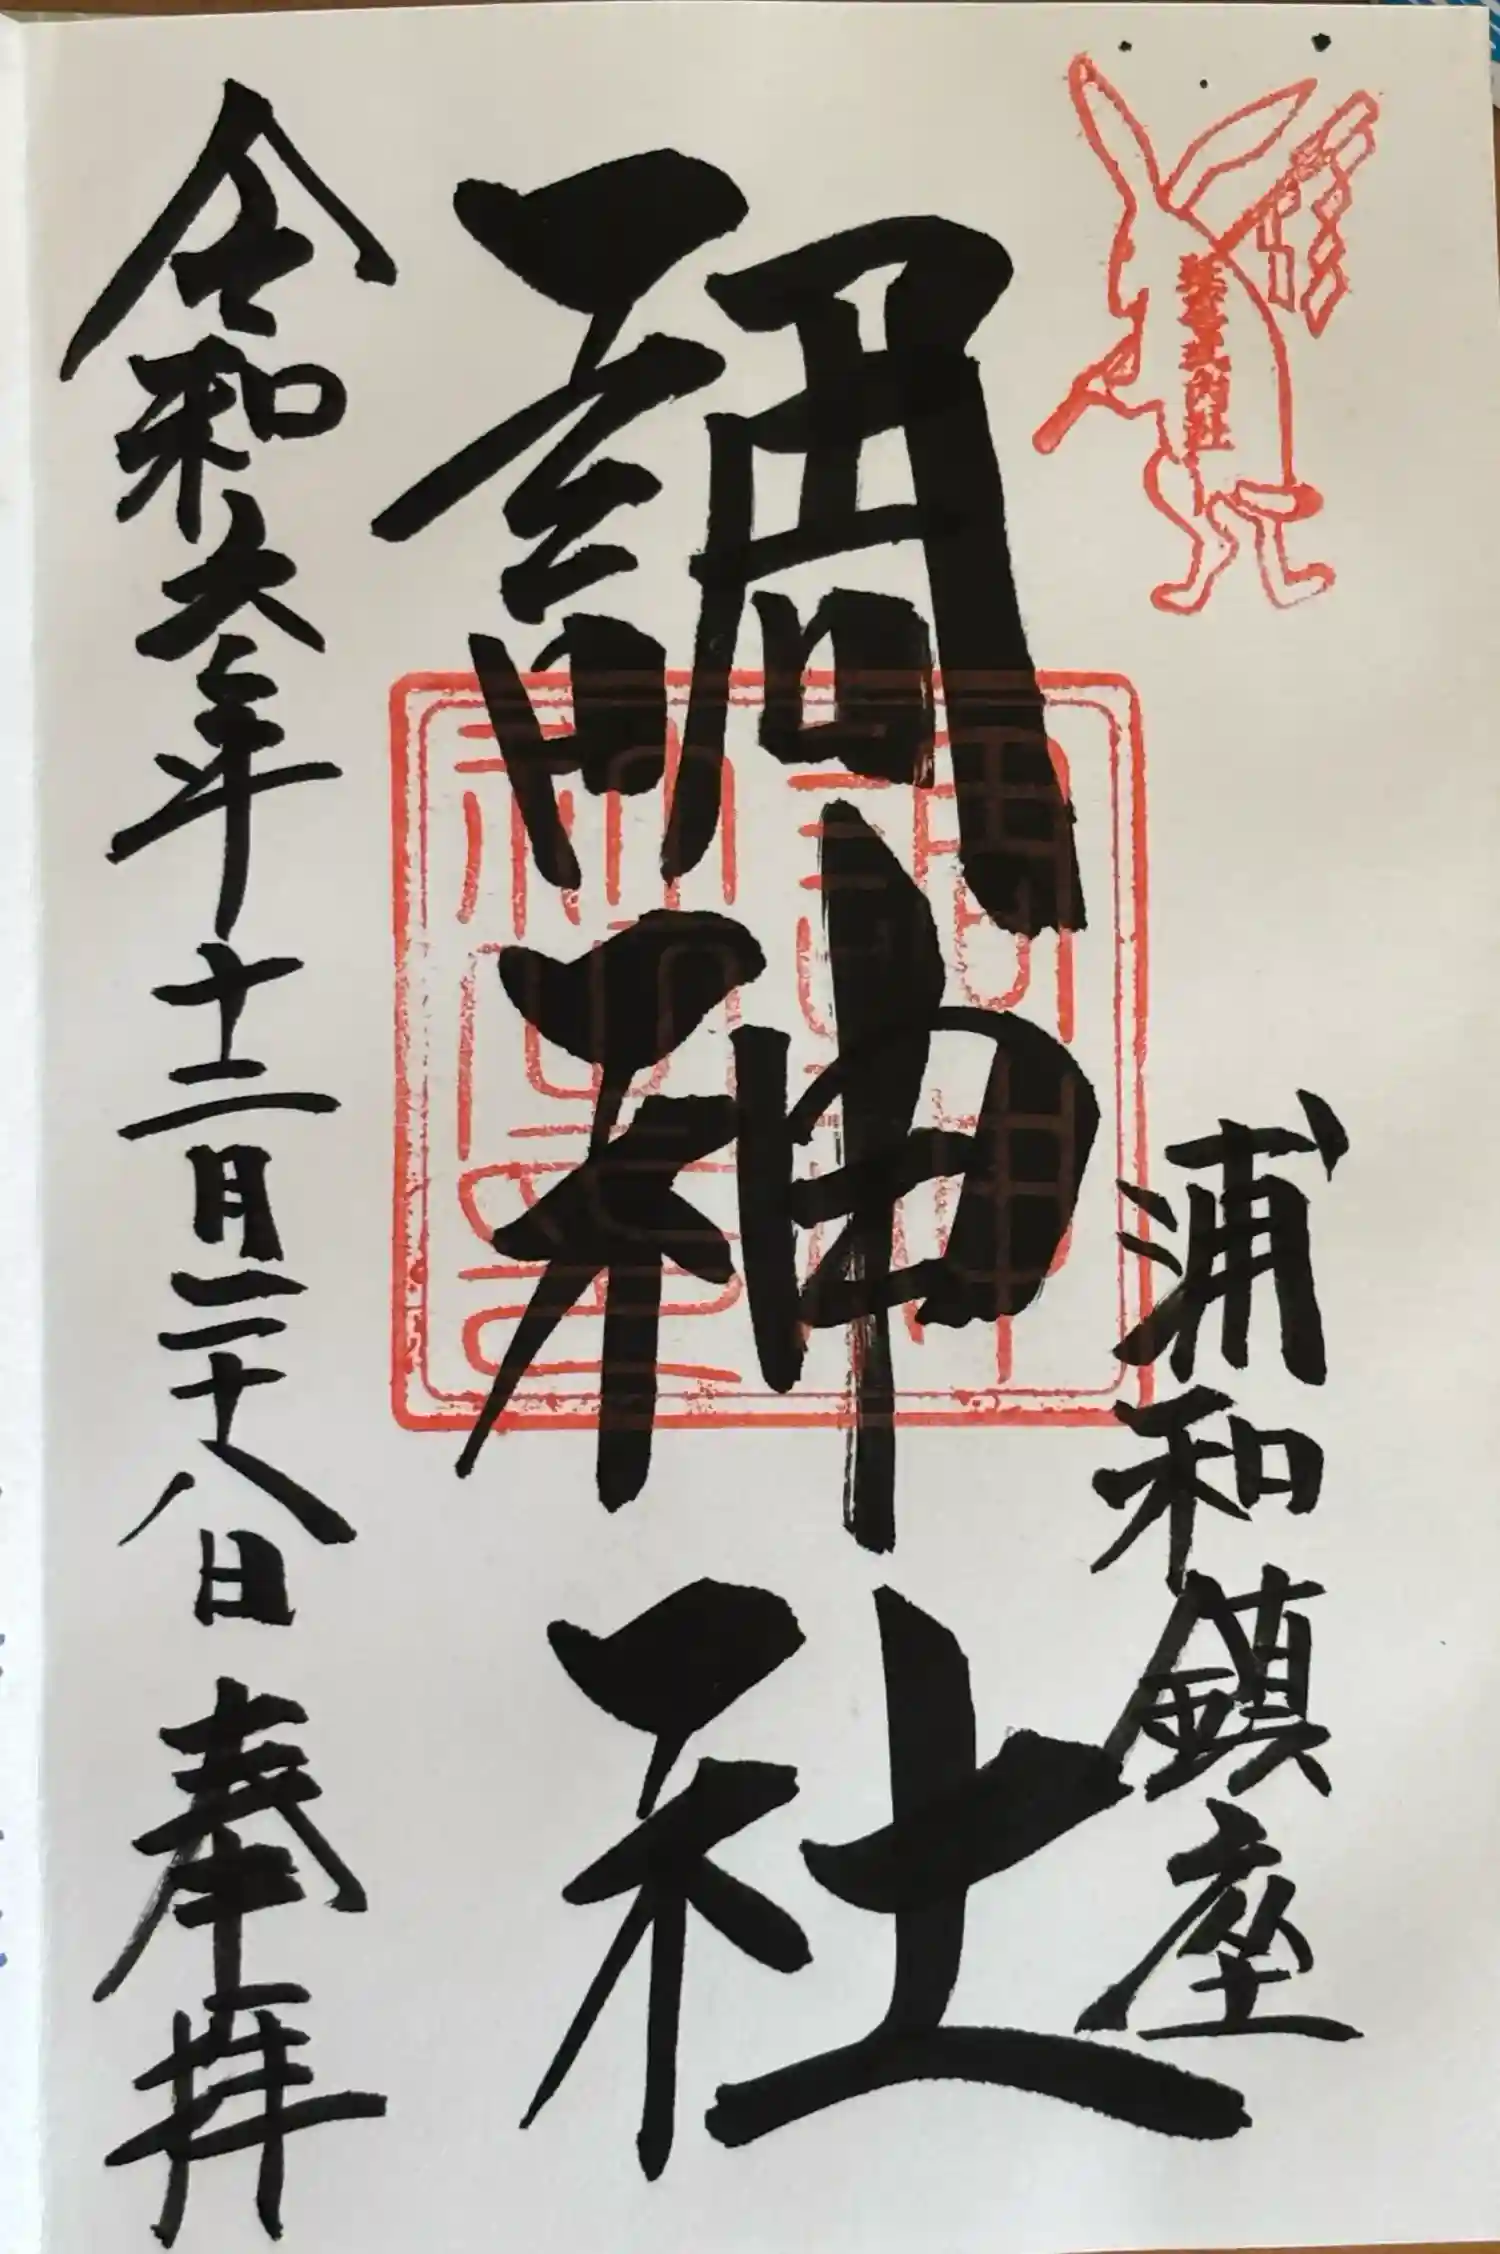 浦和鎮座
調神社
令和六年十二月二十八日 奉拝
調神社之印